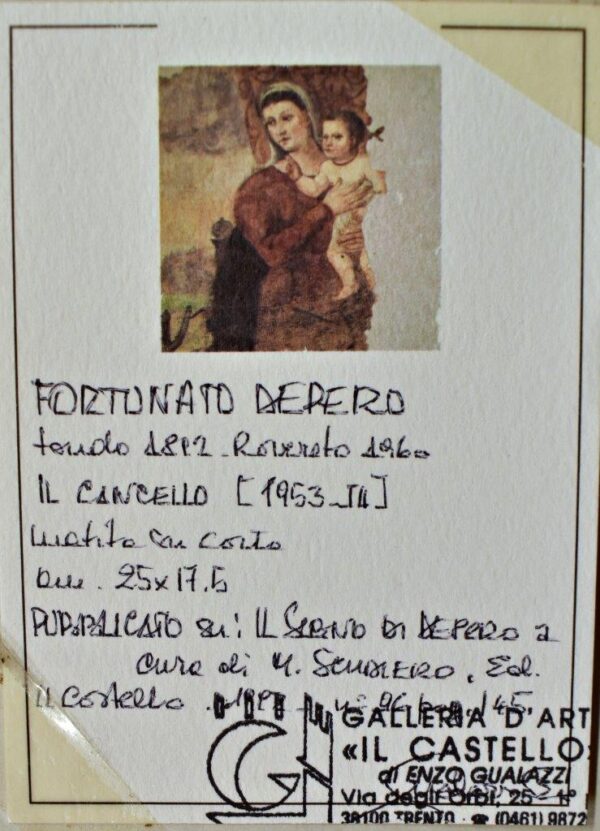 FORTUNATO DEPERO
fondo 1892 - Rovereto 1960
IL CANCELLO [1953-54]
matita su carta
cm. 25x17.5
PUBBLICATO su: IL SEGNO DI DEPERO a
cura di M. SCUDIERO, Ed.
Il Castello n° 96 pag. 145
GALLERIA D'ART
«IL CASTELLO»
di ENZO GUALAZZI
Via degli Orbi, 25
38100 TRENTO - ☎ (0461) 9872